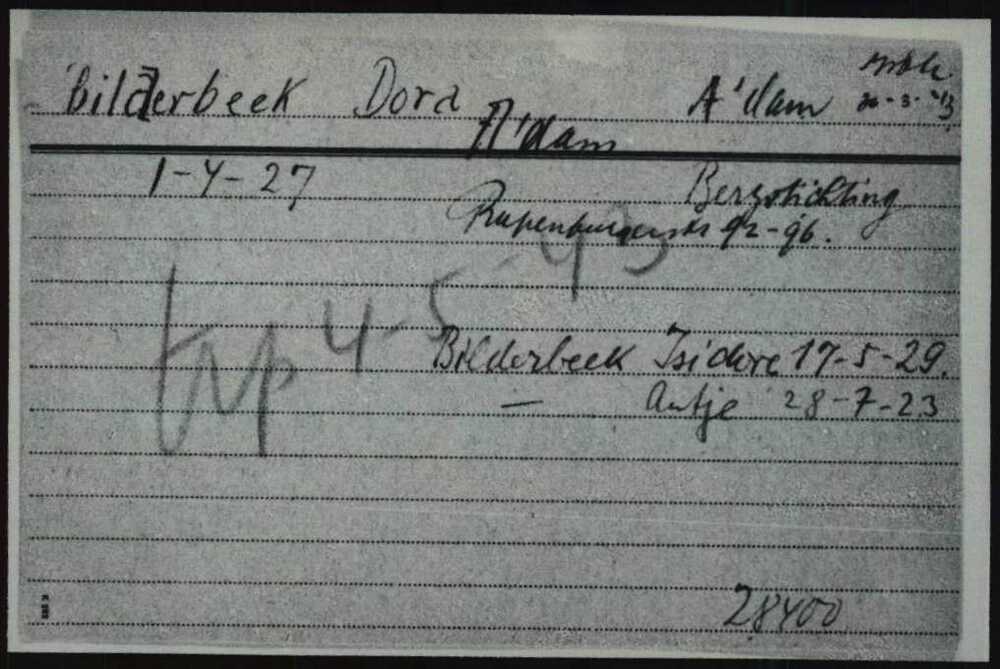 Bilderbeek Dora A'dam
A'dam
1-4-27 Bergstichting
Rapenburgerstr 92-96.
trp 4-5-43
Bilderbeek Isidore 17-5-29.
— Antje 28-7-23
28400